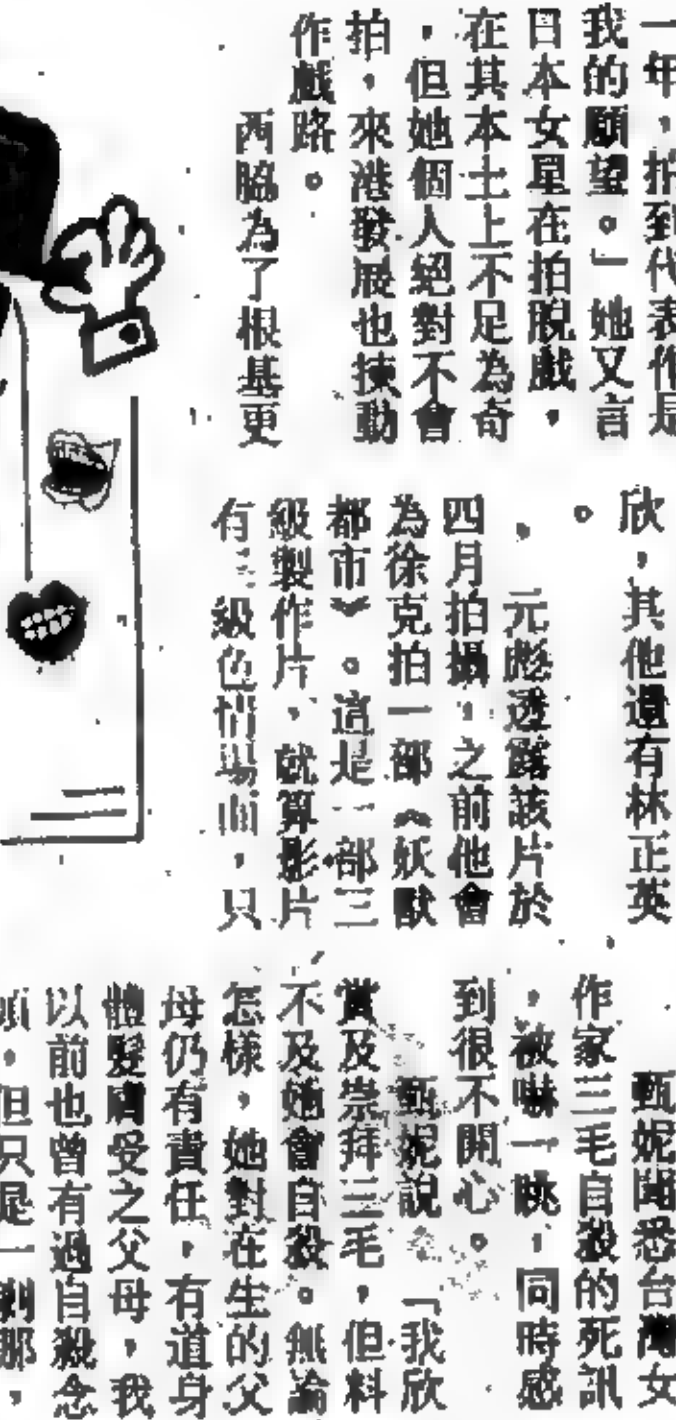 一年，拍到代表作是
我的願望。」她又言
日本女星在拍脫戲，
在其本土上不足為奇
，但她個人絕對不會
拍，來港發展也揀動
作戲路。
西脇為了根基更
欣，其他還有林正英
。
元彪透露該片於
四月拍攝，之前他會
為徐克拍一部《妖獸
都市》。這是一部三
級製作片，就算影片
有三級色情場面，只
甄妮聞悉台灣女
作家三毛自殺的死訊
，被嚇一跳，同時感
到很不開心。
甄妮說：「我欣
賞及崇拜三毛，但料
不及她會自殺。無論
怎樣，她對在生的父
母仍有責任，有道身
體髮膚受之父母，我
以前也曾有過自殺念
頭，但只是一剎那，